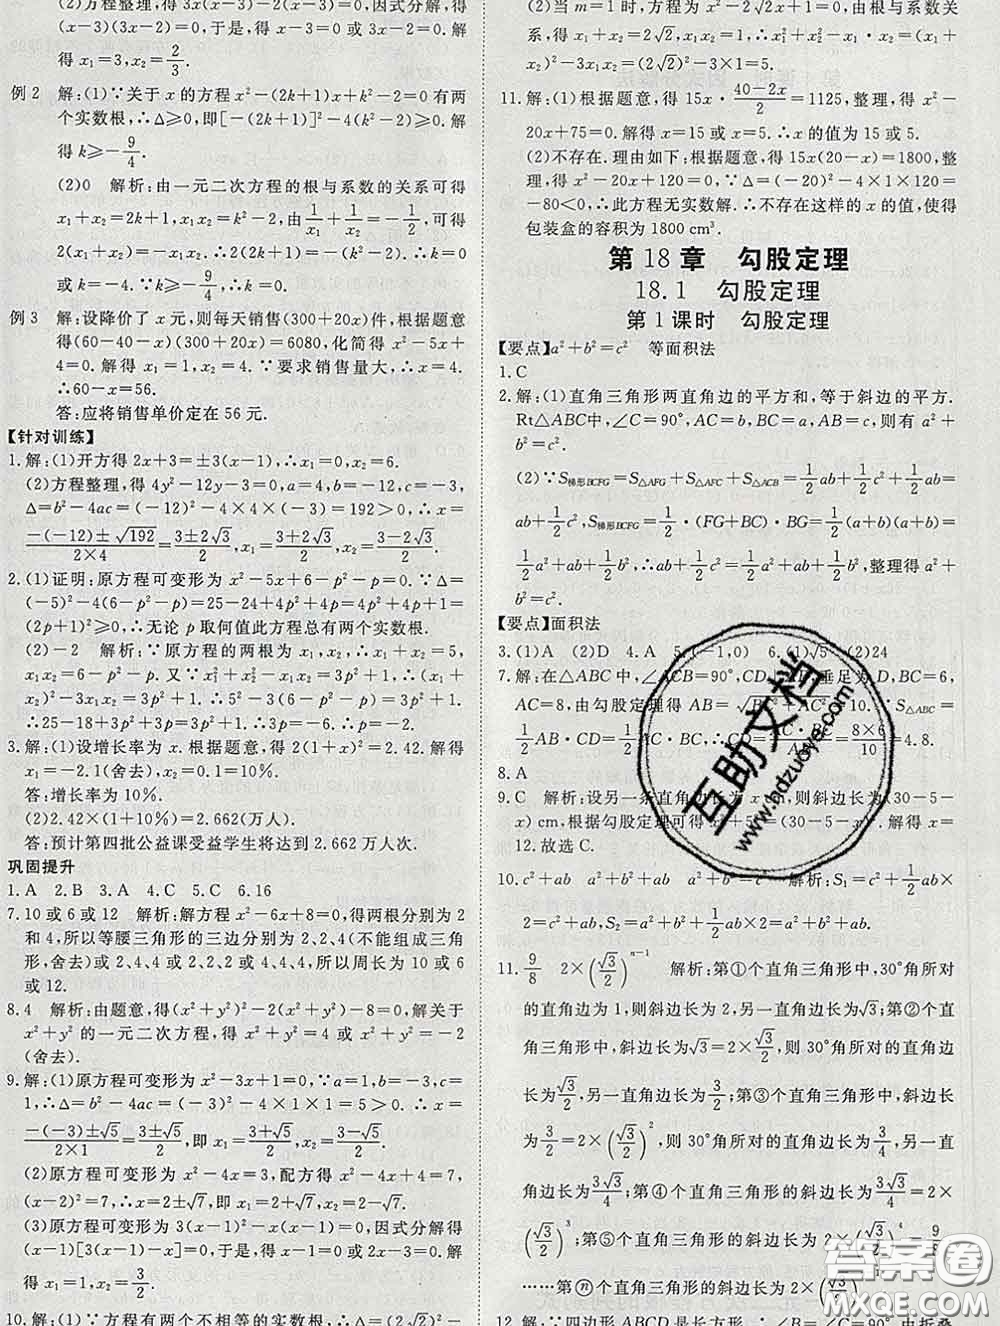 (2)方程整理,得3x(x-3)-2(x-3)=0,因式分解,得
(x-3)(3x-2)=0,于是,得x-3=0或3x-2=0.解
得x₁=3,x₂=2/3.
例2 解:(1)∵关于x的方程x²-(2k+1)x+k²-2=0有两
个实数根,∴Δ≥0,即[-(2k+1)]²-4(k²-2)≥0.解
得k≥-9/4.
(2)0 解析:由一元二次方程的根与系数的关系可得
x₁+x₂=2k+1,x₁x₂=k²-2,由1/x₁+1/x₂=-1/2,可得
2(x₁+x₂)=-x₁x₂,∴2(2k+1)=-(k²-2),∴k=0
或k=-4.∵k≥-9/4,∴k=0.
例3 解:设降价了x元,则每天销售(300+20x)件,根据题意
得(60-40-x)(300+20x)=6080,化简得x²-5x+
4=0.解得x₁=1,x₂=4.∵要求销售量大,∴x=4.
∴60-x=56.
答:应将销售单价定在56元.
【针对训练】
1.解:(1)开方得2x+3=±3(x-1),∴x₁=0,x₂=6.
(2)方程整理,得4y²-12y-3=0,a=4,b=-12,c=-3,
Δ=b²-4ac=(-12)²-4×4×(-3)=192>0,∴x=
(-(-12)±√192)/(2×4)=(3±2√3)/2,x₁=(3+2√3)/2,x₂=(3-2√3)/2.
2.(1)证明:原方程可变形为x²-5x+6-p²-p=0.∵Δ=
(-5)²-4(6-p²-p)=25-24+4p²+4p=4p²+4p+1=
(2p+1)²≥0,∴无论p取何值此方程总有两个实数根.
(2)-2 解析:∵原方程的两根为x₁,x₂,∴x₁+x₂=5,
x₁x₂=6-p²-p.又∵x₁²+x₂²-x₁x₂=3p²+1,∴(x₁+
x₂)²-3x₁x₂=3p²+1,∴5²-3(6-p²-p)=3p²+1,
∴25-18+3p²+3p=3p²+1,∴3p=-6,∴p=-2.
3.解:(1)设增长率为x.根据题意,得2(1+x)²=2.42.解得
x₁=-2.1(舍去),x₂=0.1=10%.
答:增长率为10%.
(2)2.42×(1+10%)=2.662(万人).
答:预计第四批公益课受益学生将达到2.662万人次.
巩固提升
1.A 2.B 3.A 4.C 5.C 6.16
7.10或6或12 解析:解方程x²-6x+8=0,得两根分别为2
和4,所以等腰三角形的三边分别为2、2、4(不能组成三角
形,舍去)或2、4、4或2、2、2或4、4、4.所以周长为10或6
或12.
8.4 解析:由题意,得(x²+y²)²-2(x²+y²)-8=0,解关于
x²+y²的一元二次方程,得x²+y²=4或x²+y²=-2
(舍去).
9.解:(1)原方程可变形为x²-3x+1=0,∵a=1,b=-3,c=
1,∴Δ=b²-4ac=(-3)²-4×1×1=5>0,∴x=
(-(-3)±√5)/(2×1)=(3±√5)/2,即x₁=(3+√5)/2,x₂=(3-√5)/2.
(2)原方程可变形为x²-4x=3,配方得x²-4x+4=7,
(x-2)²=7,∴x=2±√7,即x₁=2+√7,x₂=2-√7.
(3)原方程可变形为3(x-1)-x(x-1)=0,因式分解得
(x-1)[3(x-1)-x]=0,∴x-1=0或2x-3=0.解
得x₁=1,x₂=3/2.
10.解:(1)∵方程有两个不相等的实数根,∴Δ=
(2)当m=1时,方程为x²-2√2x+1=0,由根与系数关
系,得x₁+x₂=2√2,x₁x₂=1,∴x₁²+x₂²-x₁x₂=(x₁+
x₂)²-3x₁x₂=(2√2)²-3×1=5.
11.解:(1)根据题意,得15x·(40-2x)/2=1125,整理,得x²-
20x+75=0.解得x₁=15,x₂=5.∴x的值为15或5.
(2)不存在.理由如下:根据题意,得15x(20-x)=1800,整
理,得x²-20x+120=0.∵Δ=(-20)²-4×1×120=
-80<0,∴此方程无实数解.∴不存在这样的x的值,使得
包装盒的容积为1800 cm³.
第18章 勾股定理
18.1 勾股定理
第1课时 勾股定理
【要点】a²+b²=c² 等面积法
1.C
2.解:(1)直角三角形两直角边的平方和,等于斜边的平方.
Rt△ABC中,∠C=90°,AC=b,BC=a,AB=c,则有a²+
b²=c².
(2)∵S梯形BCFG=S△AFG+S△AFC+S△ACB=1/2ab+1/2c²+1/2ab=
ab+1/2c²,S梯形BCFG=1/2·(FG+BC)·BG=1/2(a+b)(a+b)=
1/2a²+ab+1/2b²,∴1/2a²+ab+1/2b²=ab+1/2c²,整理得a²+
b²=c².
【要点】面积法
3.(1)A (2)D 4.A 5.(-1,0) 6.(1)5 (2)24
7.解:在△ABC中,∠ACB=90°,CD⊥AB,垂足为D,BC=6,
AC=8,由勾股定理得AB=√(BC²+AC²)=10.∵S△ABC=
1/2AB·CD=1/2AC·BC,∴CD=(AC·BC)/AB=(8×6)/10=4.8.
8.A
9.C 解析:设另一条直角边长为x cm,则斜边长为(30-5-
x) cm,根据勾股定理可得x²+5²=(30-5-x)².解得x=
12.故选C.
10.c²+ab a²+b²+ab a²+b²=c² 解析:S₁=c²+1/2ab
×2=c²+ab,S₂=a²+b²+1/2ab×2=a²+b²+ab.
11.9/8 2×(√3/2)ⁿ⁻¹ 解析:第①个直角三角形中,30°角所对
的直角边长为1,则斜边长为2,另一直角边长为√3;第②个直
角三角形中,斜边长为√3=2×√3/2,则30°角所对的直角边
长为√3/2,另一直角边长为3/2;第③个直角三角形中,斜边长
为3/2=2×(√3/2)²,则30°角所对的直角边长为3/4,另一直
角边长为3√3/4;第④个直角三角形的斜边长为3√3/4=2×
(√3/2)³;第⑤个直角三角形的斜边长为2×(√3/2)⁴=9/8;
……第ⓝ个直角三角形的斜边长为2×(√3/2)
12.解:∵四边形ABCD是长方形,∴∠B=∠C=90°,由折叠
互助文档
www.hdzuoye.com
答案圈
MXQE.COM